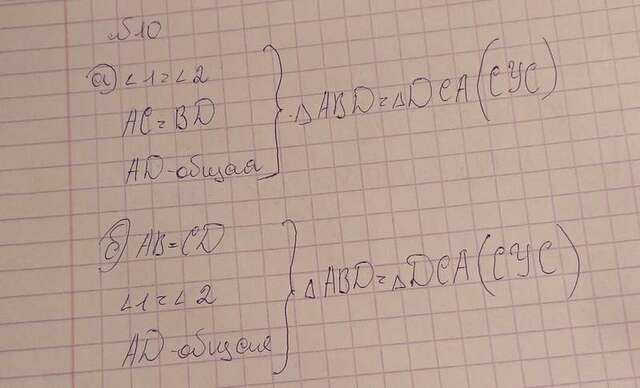 №10
а) ∠1=∠2
AC=BD
AD-общая
△ABD=△DCA(СУС)
б) AB=CD
∠1=∠2
AD-общая
△ABD=△DCA(СУС)